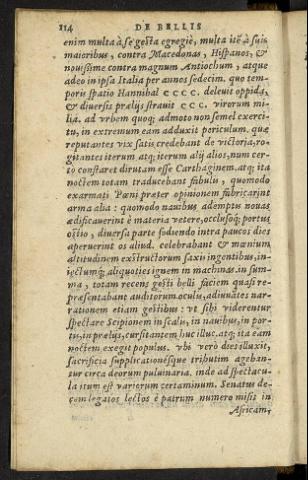 114 DE BELLIS
enim multa à se gesta egregiè, multa itē à suis
maioribus, contra Macedonas, Hispanos, &
nouissime contra magnum Antiochum, atque
adeo in ipsa Italia per annos sedecim. quo tem-
poris spatio Hannibal cccc. deleuit oppida,
& diuersis prælijs strauit ccc. virorum mi-
lia. ad vrbem quoq; admoto non semel exerci-
tu, in extremum eam adduxit periculum. quæ
reputantes vix satis credebant de victoria, ro-
gitantes iterum atq; iterum alij alios, num cer-
to constaret dirutam esse Carthaginem. atq; ita
noctem totam traducebant fabulis, quomodo
exarmati Pœni præter opinionem fabricarint
arma alia: quomodo nauibus ademptis nouas
ædificauerint è materia vetere, occlusoq; portus
ostio, diuersa parte fodiendo intra paucos dies
aperuerint os aliud. celebrabant & mœnium
altitudinem exstructorum saxis ingentibus, in-
iectumq; aliquoties ignem in machinas. in sum-
ma, totam recens gesti belli faciem quasi re-
præsentabant auditorum oculis, adiuuātes nar-
rationem etiam gestibus: vt sibi viderentur
spectare Scipionem in scalis, in nauibus, in por-
tis, in prælijs, cursitantem huc illuc. atq; ita eam
noctem exegit populus. vbi verò dies illuxit,
sacrificia supplicationésque tributim ageban-
tur circa deorum puluinaria. inde ad spectacu-
la itum est variorum certaminum. Senatus de-
cem legatos lectos è patrum numero misit in
Africam,